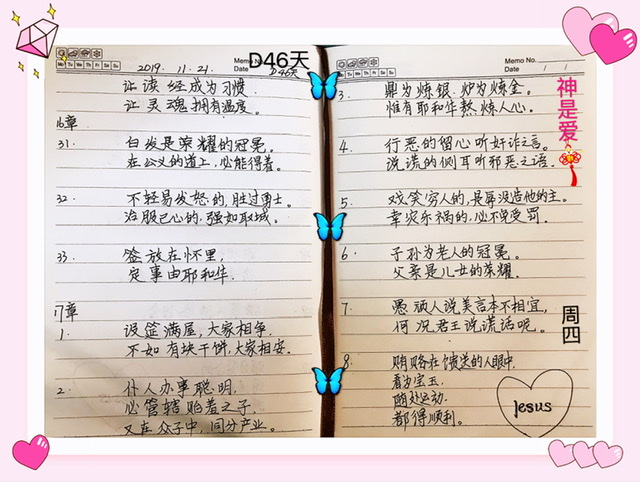 D46天
Memo No.
Mo Tu We Th Fr Sa Su
Date
2019. 11. 21. D46天
让读经成为习惯
让灵魂拥有温度。
16章
31. 白发是荣耀的冠冕。
在公义的道上，必能得着。
32. 不轻易发怒的，胜过勇士。
治服己心的，强如取城。
33. 签放在怀里，
定事由耶和华.
17章
1. 设筵满屋，大家相争，
不如有块干饼，大家相安.
2. 仆人办事聪明，
必管辖贻羞之子，
又在众子中，同分产业。
Memo No.
Mo Tu We Th Fr Sa Su
Date / /
3. 鼎为炼银，炉为炼金。
惟有耶和华熬炼人心。
4. 行恶的留心听奸诈之言。
说谎的侧耳听邪恶之语。
5 戏笑穷人的，是辱没造他的主。
幸灾乐祸的，必不免受罚。
6 子孙为老人的冠冕。
父亲是儿女的荣耀。
7 愚顽人说美言本不相宜，
何况君王说谎话呢。
8. 贿赂在馈送的人眼中，
看为宝玉.
随处运动.
都得顺利。
神是爱
周四
Jesus